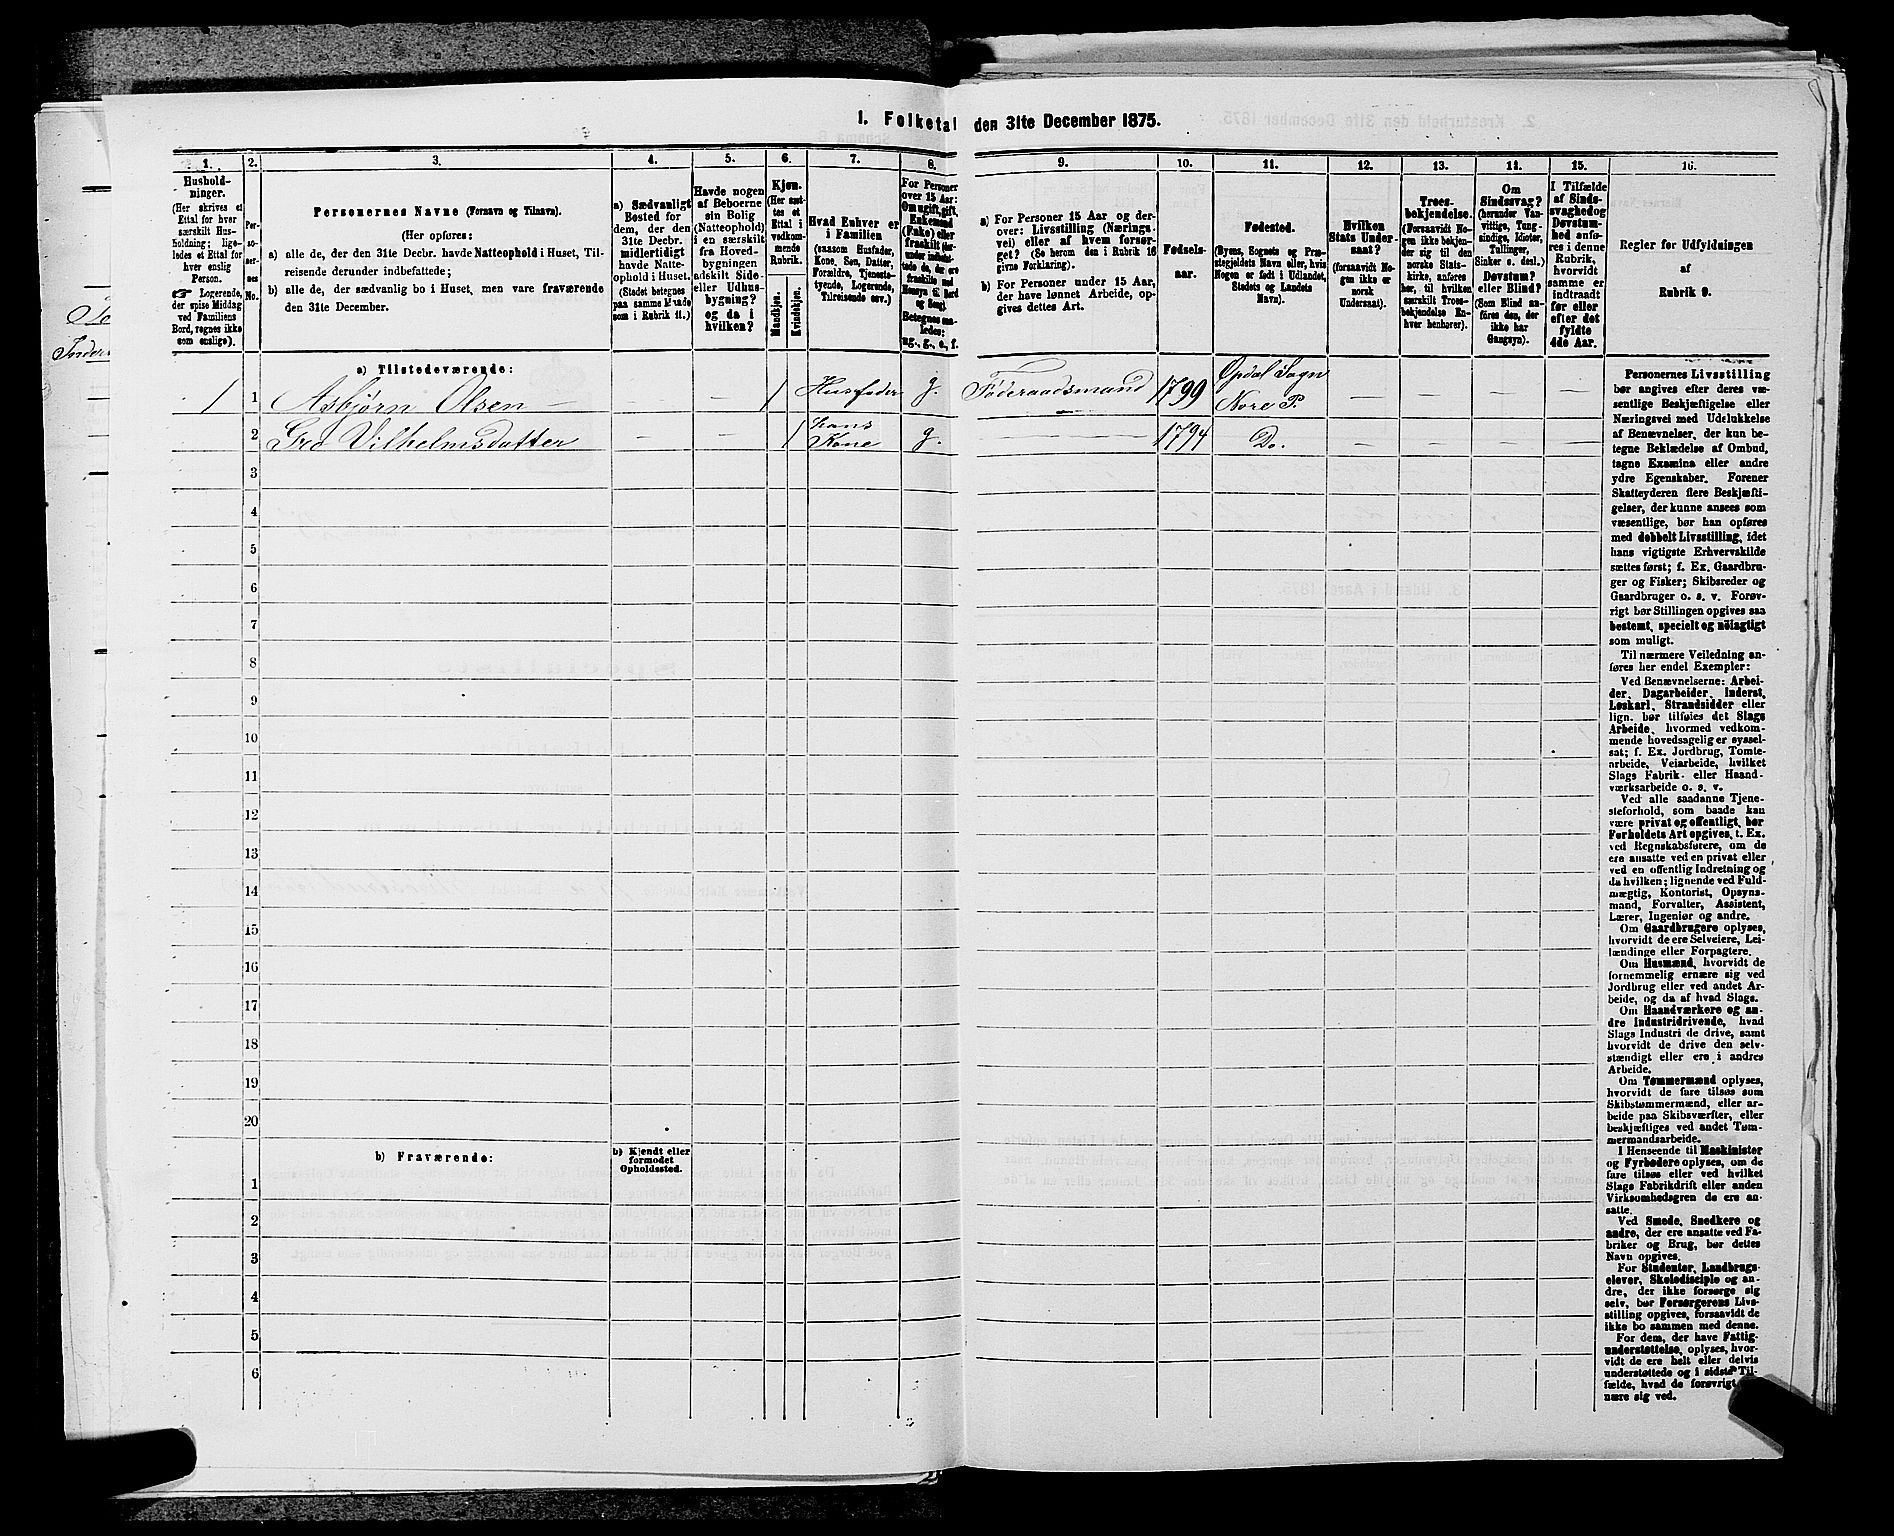 1. Folketal den 31te December 1875.
1.
Hushold-
ninger.
(Her skrives et
Ettal for hver
særskilt Hus-
holdning; lige-
ledes et Ettal for
hver enslig
Person.
☞ Logerende,
der spise Middag
ved Familiens
Bord, regnes ikke
som enslige).
2.
Per-
so-
ner-
nes
No.
3.
Personernes Navne (Fornavn og Tilnavn).
(Her opføres:
a) alle de, der den 31te Decbr. havde Natteophold i Huset, Til-
reisende derunder indbefattede;
b) alle de, der sædvanlig bo i Huset, men vare fraværende
den 31te December.
4.
a) Sædvanligt
Bosted for
dem, der den
31te Decbr.
midlertidigt
havde Natte-
ophold i Huset.
(Stedet betegnes
paa samme Maade
som i Rubrik 11.)
5.
Havde nogen
af Beboerne
sin Bolig
(Natteophold)
i en særskilt
fra Hoved-
bygningen
adskilt Side-
eller Udhus-
bygning?
og da i
hvilken?
6.
Kjøn.
(Her sæt-
tes et
Ettal i
vedkom-
mende
Rubrik.
Mandkjøn.
Kvindekjøn.
7.
Hvad Enhver er
i Familien
(saasom Husfader,
Kone, Søn, Datter,
Forældre, Tjeneste-
tyende, Logerende,
Tilreisende osv.)
8.
For Personer
over 15 Aar:
Om ugift, gift,
Enkemand
(Enke) eller
fraskilt
Betegnes saa-
ledes:
ug., g., e., f.
9.
a) For Personer 15 Aar og der-
over: Livsstilling (Nærings-
vei) eller af hvem forsør-
get? (Se herom den i Rubrik 16
givne Forklaring).
b) For Personer under 15 Aar,
der have lønnet Arbeide, op-
gives dettes Art.
10.
Fødsels-
aar.
11.
Fødested.
(Byens, Sognets og Præ-
stegjeldets Navn eller, hvis
Nogen er født i Udlandet,
Stedets og Landets
Navn).
12.
Hvilken
Stats Under-
saat?
(forsaavidt No-
gen ikke er
norsk
Undersaat).
13.
Troes-
bekjendelse.
(Forsaavidt No-
gen ikke bekjen-
der sig til den
norske Stats-
kirke, anføres
her, til hvilken
særskilt Troes-
bekjendelse En-
hver henhører).
14.
Om
Sindssvag?
(herunder Van-
vittige, Tung-
sindige, Idioter,
Tullinger,
Sinker o. desl.)
Døvstum?
eller Blind?
(Som Blind an-
føres den, der
ikke har
Gangsyn).
15.
I Tilfælde
af Sinds-
svaghed og
Døvstum-
hed anfø-
res i denne
Rubrik,
hvorvidt
samme er
indtraadt
før eller
efter det
fyldte
4de Aar.
16.
Regler for Udfyldningen
af
Rubrik 9.
a) Tilstedeværende:
1 1 Asbjørn Olsen — — — 1 Husfader g. Føderaadsmand 1799 Opdal Sogn Nore P. — — — —
2 Gro Vilhelmsdatter — — 1 hans Kone g. — 1794 Do. — — — —
3
4
5
6
7
8
9
10
11
12
13
14
15
16
17
18
19
20
b) Fraværende:
b) Kjendt eller
formodet
Opholdssted.
1
2
3
4
5
6
Personernes Livsstilling
bør angives efter deres væ-
sentlige Beskjæftigelse eller
Næringsvei med Udelukkelse
af Benævnelser, der kun be-
tegne Beklædelse af Ombud,
tagne Examina eller andre
ydre Egenskaber. Forener
Skatteyderen flere Beskjæfti-
gelser, der kunne ansees som
væsentlige, bør han opføres
med dobbelt Livsstilling, idet
hans vigtigste Erhvervskilde
sættes først; f. Ex. Gaardbru-
ger og Fisker; Skibsreder og
Gaardbruger o. s. v. Forøv-
rigt bør Stillingen opgives saa
bestemt, specielt og nöiagtigt
som muligt.
Til nærmere Veiledning an-
føres her endel Exempler:
Ved Benævnelserne: Arbei-
der, Dagarbeider, Inderst,
Løskarl, Strandsidder eller
lign. bør tilføies det Slags
Arbeide, hvormed vedkom-
mende hovedsagelig er syssel-
sat; f. Ex. Jordbrug, Tomte-
arbeide, Veiarbeide, hvilket
Slags Fabrik- eller Haand-
værksarbeide o. s. v.
Ved alle saadanne Tjene-
steforhold, som baade kan
være privat og offentligt, bør
Forholdets Art opgives, t. Ex.
ved Regnskabsførere, om de
ere ansatte ved en privat eller
ved en offentlig Indretning og
da hvilken; lignende ved Fuld-
mægtig, Kontorist, Opsyns-
mand, Forvalter, Assistent,
Lærer, Ingeniør og andre.
Om Gaardbrugere oplyses,
hvorvidt de ere Selveiere, Lei-
lændinge eller Forpagtere.
Om Husmænd, hvorvidt de
fornemmelig ernære sig ved
Jordbrug eller ved andet Ar-
beide, og da af hvad Slags.
Om Haandværkere og an-
dre Industridrivende, hvad
Slags Industri de drive, samt
hvorvidt de drive den selv-
stændigt eller ere i andres
Arbeide.
Om Tømmermænd oplyses,
hvorvidt de fare tilsøs som
Skibstømmermænd, eller ar-
beide paa Skibsværfter, eller
beskjæftiges ved andet Tøm-
mermandsarbeide.
I Henseende til Maskinister
og Fyrbødere oplyses, om de
fare tilsøs eller ved hvilket
Slags Fabrikdrift eller anden
Virksomhedsgren de ere an-
satte.
Ved Smede, Snedkere og
andre, der ere ansatte ved Fa-
briker og Brug, bør dettes
Navn opgives.
For Studenter, Landbrugs-
elever, Skoledisciple og an-
dre, der ikke forsørge sig
selv, bør Forsørgerens Livs-
stilling opgives, forsaavidt de
ikke bo sammen med denne.
For dem, der have Fattig-
understøttelse, oplyses, hvor-
vidt de ere helt eller delvis
understøttede og i sidste Til-
fælde, hvad de forøvrigt
nære sig ved.